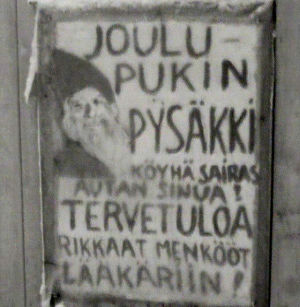 JOULU-
PUKIN
PYSÄKKI
KÖYHÄ SAIRAS
AUTAN SINUA!
TERVETULOA
RIKKAAT MENKÖÖT
LÄÄKÄRIIN!